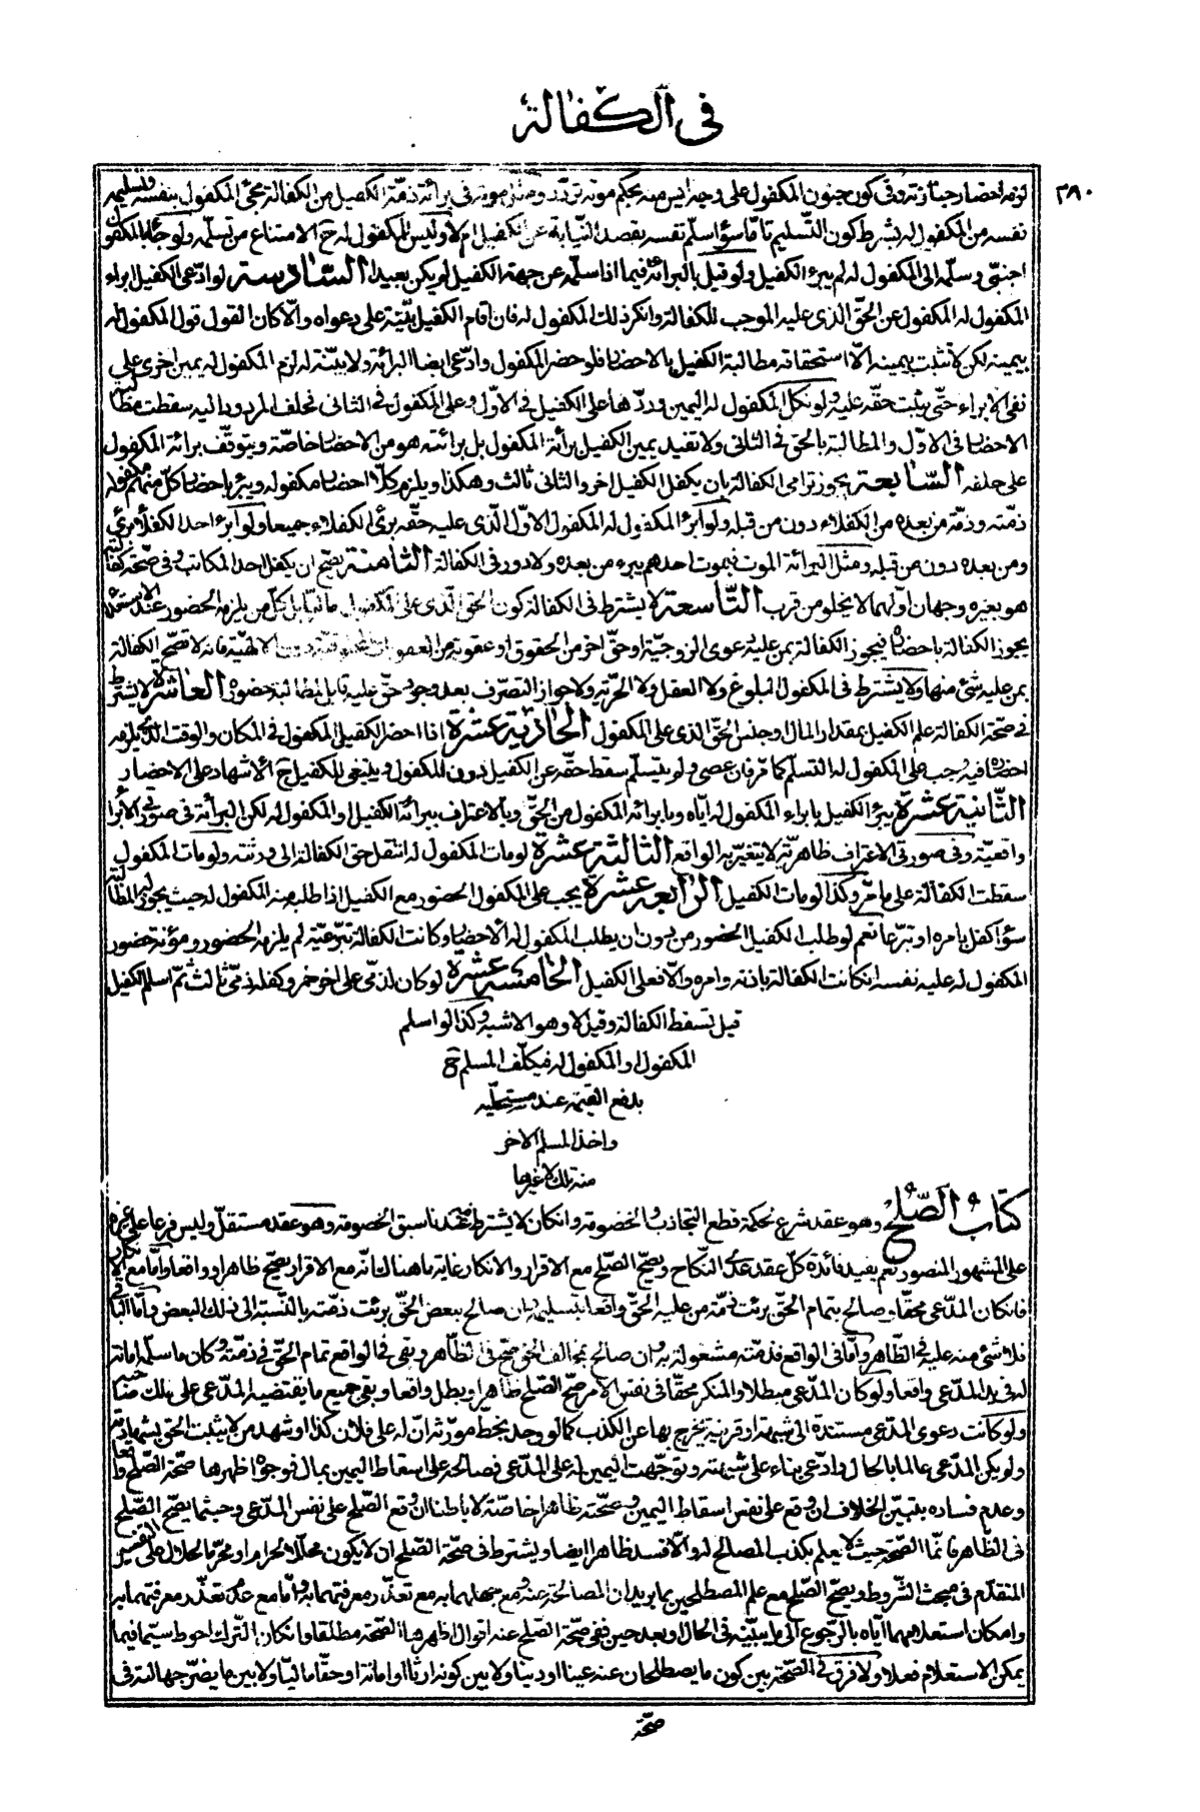 في الكفالة
٣٨٠
لزمه احضار جنازته وفى كون جنون المكفول على وجه ايس منه بحكم موته تردد و موته فى برائة ذمّة الكفيل من الكفالة مجئ المكفول بنفسه وتسليمه
نفسه من المكفول له بشرط كون التّسليم تامّا سواء سلّم نفسه بقصد النّيابة عن الكفيل ام لا وليس للمكفول له ح الامتناع من تسلّمه ولو جاء بالمكفول
اجنبىّ وسلّمه الى المكفول له لم يبرء الكفيل ولو قيل بالبرائة فيما اذا سلّمه عن جهة الكفيل لم يكن بعيدا السّادسة لو ادّعى الكفيل ابراء
المكفول له المكفول عن الحقّ الذى عليه الموجب للكفالة وانكر ذلك المكفول له فان اقام الكفيل بيّنة على دعواه والّا كان القول قول المكفول له
بيمينه لكن لا تثبت بيمينه الّا استحقاقه مطالبة الكفيل بالاحضار فلو حضر المكفول وادّعى ايضا البرائة ولا بيّنة له لزم المكفول له يمين اخرى على
نفى الابراء حتّى يثبت حقّه عليه ولو نكل المكفول له اليمين وردّها على الكفيل فى الاوّل وعلى المكفول فى الثانى فحلف المردود اليه سقطت مطالبة
الاحضار فى الاوّل والمطالبة بالحق فى الثانى ولا تفيد يمين الكفيل برائة المكفول بل برائته هو من الاحضار خاصّة ويتوقّف برائة المكفول
على حلفه السّابعة يجوز ترامى الكفالة بان يكفل الكفيل اخر والثانى ثالث وهكذا ويلزم كلّا احضار مكفوله ويبرء باحضار كلّ منهم مكفوله
ذمّته وذمّة من بعده من الكفلاء دون من قبله ولو ابرء المكفول له المكفول الاوّل الّذى عليه حقّه برئ الكفلاء جميعا ولو ابرء احد الكفلاء برئ
ومن بعده دون من قبله ومثل البرائة الموت فبموت احدهم يبرء من بعده ولا دور فى الكفالة الثّامنة يصحّ ان يكفل احد المكاتب وفى صحّة كفالته
هو بغيره وجهان اوّلهما لا يخلو من قرب التّاسعة لا يشترط فى الكفالة كون الحق الّذى على المكفول ماليّا بل كلّ من يلزمه الحضور عند الاستعداء
يجوز الكفالة باحضاره فيجوز الكفالة بمن عليه دعوى الزوجيّة او حقّ اخر من الحقوق او عقوبة من العقوبات دون الالهيّة فانه لا تصحّ الكفالة
بمن عليه شئ منها ولا يشترط فى المكفول البلوغ ولا العقل ولا الحرّيّة ولا جواز التصرّف بعد وجود حقّ عليه قابل لمطالبة حضوره العاشرة لا يشترط
فى صحّة الكفالة علم الكفيل بمقدار المال وجنس الحقّ الذى على المكفول الحادية عشرة اذا احضر الكفيل المكفول فى المكان والوقت الّذى يلزمه
احضاره فيه وجب على المكفول له التسلّم كما مرّ فان عصى ولو بتسلّم سقط حقّه عن الكفيل دون المكفول وينبغى للكفيل ح الاشهاد على الاحضار
الثّانية عشرة يبرء الكفيل بابراء المكفول له ايّاه وبابرائه المكفول من الحقّ وبالاعتراف ببرائة الكفيل او المكفول له لكن البرائة فى صورتى الابراء
واقعيّة وفى صورتى الاعتراف ظاهريّة لا يتغيّر به الواقع الثّالثة عشرة لو مات المكفول له انتقل حق الكفالة الى ورثته ولو مات المكفول
سقطت الكفالة على ما مرّ وكذا لو مات الكفيل الرّابعة عشرة يجب على المكفول الحضور مع الكفيل اذا طلبه منه المكفول له حيث يجوز له المطالبة
سواء كفل بامره او تبرّعا نعم لو طلب الكفيل الحضور من دون ان يطلب المكفول له الاحضار وكانت الكفالة تبرّعيّة لم يلزمه الحضور ومؤنة حضور
المكفول له عليه نفسه ان كانت الكفالة باذنه وامره والّا فعلى الكفيل الخامسة عشرة لو كان لذمّى على اخر خمر وكفله ذمّى ثالث ثمّ اسلم الكفيل
قيل تسقط الكفالة وقيل لا وهو الاشبه وكذا لو اسلم
المكفول او المكفول له فيكلّف المسلم ح
بدفع القيمة عند مستحلّيه
واخذ المسلم الاخر
منه تلك لا غيرها
كتاب الصّلح وهو عقد شرع لحكمة قطع التجاذب والخصومة وان كان لا يشترط صحّته هنا سبق الخصومة وهو عقد مستقلّ وليس فرعا على غيره
على المشهور المنصور نعم يفيد فائدة كلّ عقد عدى النّكاح ويصحّ الصّلح مع الاقرار والانكار غاية ما هناك انّه مع الاقرار يصحّ ظاهرا وواقعا وامّا مع الانكار
فان كان المدّعى محقّا وصالح بتمام الحقّ برئت ذمّة من عليه الحقّ واقعا بتسليمه وان صالح ببعض الحقّ برئت ذمّته بالنّسبة الى ذلك البعض وامّا الباقى
فلا شئ منه عليه فى الظّاهر وامّا فى الواقع فذمّته مشغولة به وان صالح بمخالف الحق صحّ فى الظّاهر وبقى فى الواقع تمام الحقّ فى ذمّته وكان ما سلّمه امانة
له فى يد المدّعى واقعا ولو كان المدّعى مبطلا والمنكر محقّا فى نفس الامر صحّ الصّلح ظاهرا وبطل واقعا وبقى جميع ما يقتضيه المدّعى على ملك صاحبه
ولو كانت دعوى المدّعى مستندة الى شبهة او قرينة يخرج بها عن الكذب كما لو وجد بخطّ مورّثه انّ له على فلان كذا او شهد من لا يثبت الحق بشهادته
ولم يكن المدّعى عالما بالحال وادّعى بناء على شبهته وتوجّهت اليمين له على المدّعى فصالحه على اسقاط اليمين بمال فوجوه اظهرها صحّة الصّلح واقعا
وعدم فساده بتبيّن الخلاف ان وقع على نفس اسقاط اليمين وصحّته ظاهرا خاصّة لا باطنا ان وقع الصّلح على نفس المدّعى وحيثما يصحّ الصّلح
فى الظّاهر فانّما الصّحّة حيث لا يعلم بكذب المصالح له والّا فسد ظاهرا ايضا ويشترط فى صحّة الصّلح ان لا يكون محلّلا لحرام او محرّما لحلال على التفسير
المتقدّم فى مبحث الشّروط ويصحّ الصّلح مع علم المصطلحين بما يريدان المصالحة عنه ومع جهلهما به مع تعذّر معرفتهما به وامّا مع عدم تعذّر معرفتهما به
وامكان استعلامهما ايّاه بالرجوع الى ما يبيّنه فى الحال او بعد حين ففى صحّة الصّلح عنه اقوال اظهرها الصّحّة مطلقا وان كان التّرك احوط سيّما فيما
يمكن الاستعلام فعلا ولا فرق فى الصّحّة بين كون ما يصطلحان عنه عينا او دينا ولا بين كونه ارثا او امانة او حقّا ماليّا ولا بين ما يضرّ جهالته فى
صحّة